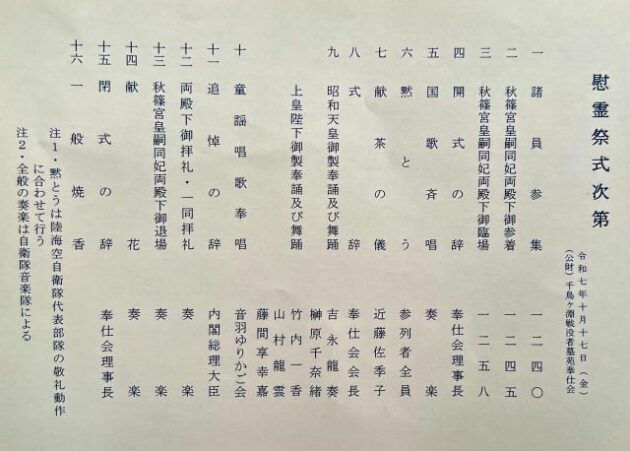 慰霊祭式次第
令和七年十月十七日(金)
(公財)千鳥ヶ淵戦没者墓苑奉仕会
一 諸員参集 一二四〇
二 秋篠宮皇嗣同妃両殿下御参着 一二四五
三 秋篠宮皇嗣同妃両殿下御臨場 一二五八
四 開式の辞 奉仕会理事長
五 国歌斉唱 奏楽
六 黙とう 参列者全員
七 献茶の儀 近藤佐季子
八 式辞 奉仕会会長
九 昭和天皇御製奉誦及び舞踊 吉永龍奏
榊原千奈緒
上皇陛下御製奉誦及び舞踊 竹内一香
山村龍雲
藤間享幸嘉
十 童謡唱歌奉唱 音羽ゆりかご会
十一 追悼の辞 内閣総理大臣
十二 両殿下御拝礼・一同拝礼 奏楽
十三 秋篠宮皇嗣同妃両殿下御退場 奏楽
十四 献花 奏楽
十五 閉式の辞 奉仕会理事長
十六 一般焼香
注1・黙とうは陸海空自衛隊代表部隊の敬礼動作
に合わせて行う
注2・全般の奏楽は自衛隊音楽隊による